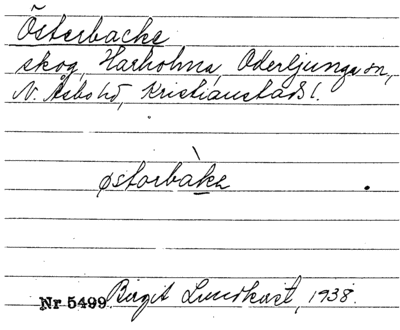 Österbacke
skog, Harholma, Oderljunga sn,
N. Åsbo hd, Kristianstads l.
østorbàka
Nr 5499 Birgit Lundkvist, 1938.